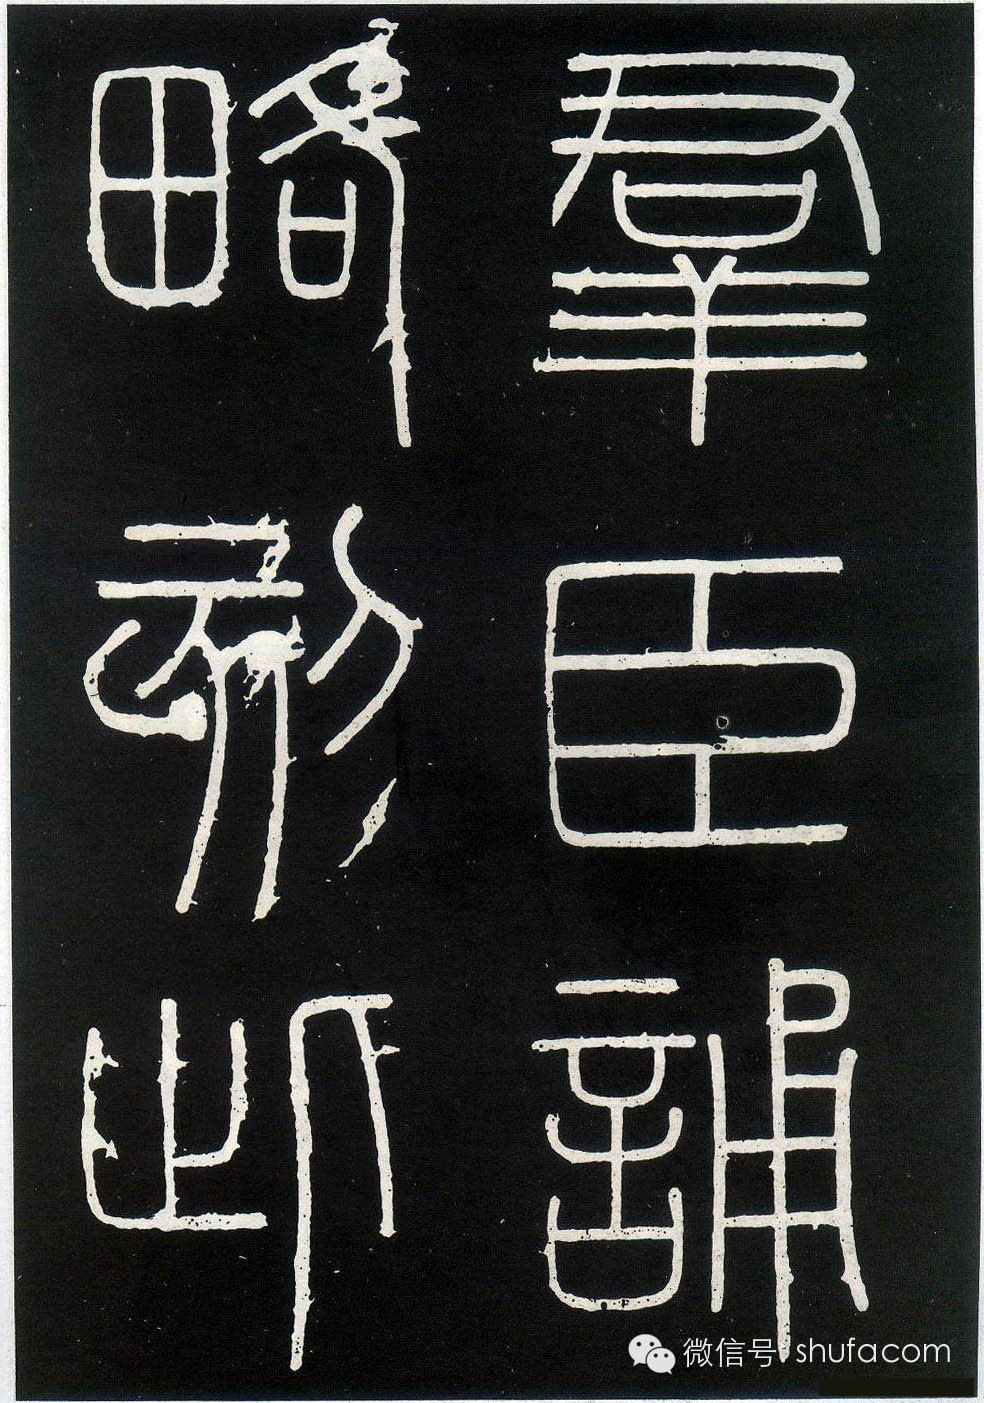 羣臣誦
略刻此
微信号: shufacom